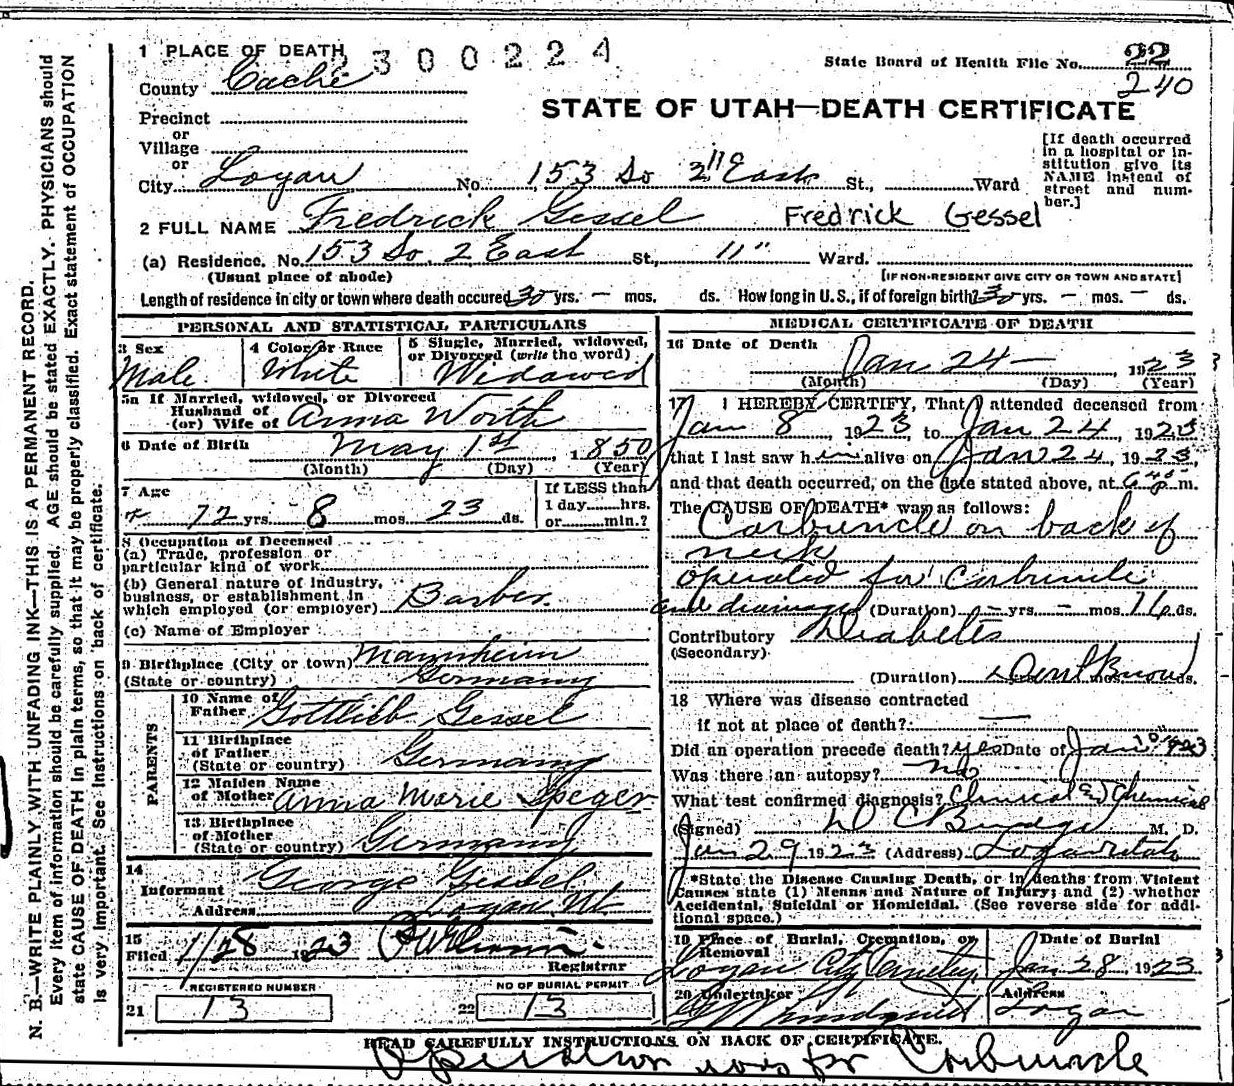 1 PLACE OF DEATH 2300224
State Board of Health File No. 22
240
County Cache
STATE OF UTAH—DEATH CERTIFICATE
Precinct
or
Village
or
City Logan No. 153 So 2nd East St., Ward
[If death occurred in a hospital or institution give its NAME instead of street and number.]
2 FULL NAME Fredrick Gessel Fredrick Gessel
(a) Residence. No. 153 So. 2 East St., 11" Ward.
(Usual place of abode) [IF NON-RESIDENT GIVE CITY OR TOWN AND STATE]
Length of residence in city or town where death occured 30 yrs. — mos. ds. How long in U.S., if of foreign birth? 30 yrs. — mos. — ds.
PERSONAL AND STATISTICAL PARTICULARS
3 Sex
Male
4 Color or Race
White
5 Single, Married, widowed,
or Divorced (write the word)
Widowed
5a If Married, widowed, or Divorced
Husband of
(or) Wife of Anna Worth
6 Date of Birth May 1st, 1850
(Month) (Day) (Year)
7 Age
72 yrs. 8 mos. 23 ds.
If LESS than
1 day......hrs.
or......min.?
8 Occupation of Deceased
(a) Trade, profession or
particular kind of work
(b) General nature of Industry,
business, or establishment in
which employed (or employer) Barber.
(c) Name of Employer
9 Birthplace (City or town) Mannheim
(State or country) Germany
PARENTS
10 Name of
Father Gottlieb Gessel
11 Birthplace
of Father
(State or country) Germany
12 Maiden Name
of Mother Anna Marie Speger
13 Birthplace
of Mother
(State or country) Germany
14
Informant George Gessel
Address Logan Ut.
15
Filed 1/28 1923
Registrar
REGISTERED NUMBER
21 13
NO OF BURIAL PERMIT
22 13
MEDICAL CERTIFICATE OF DEATH
16 Date of Death
Jan 24 — , 1923
(Month) (Day) (Year)
17 I HEREBY CERTIFY, That I attended deceased from
Jan 8, 1923 to Jan 24, 1923
that I last saw him alive on Jan 24, 1923,
and that death occurred, on the date stated above, at m.
The CAUSE OF DEATH* was as follows:
Carbuncle on back of
neck
operated for Carbuncle
and drainage (Duration) — yrs. — mos. 16 ds.
Contributory Diabetes
(Secondary)
(Duration) Dont Know ds.
18 Where was disease contracted
if not at place of death? —
Did an operation precede death? yes Date of Jan 10" 1923
Was there an autopsy? No
What test confirmed diagnosis? Clinical & Chemical
(Signed) D C Budge M. D.
Jan 29 1923 (Address) Logan Utah
*State the Disease Causing Death, or in deaths from Violent
Causes state (1) Means and Nature of Injury; and (2) whether
Accidental, Suicidal or Homicidal. (See reverse side for addi-
tional space.)
19 Place of Burial, Cremation, or
Removal
Logan City Cemetery
Date of Burial
Jan 28, 1923
20 Undertaker
Address
Logan
READ CAREFULLY INSTRUCTIONS ON BACK OF CERTIFICATE.
Operation was for Carbuncle
N. B.—WRITE PLAINLY WITH UNFADING INK—THIS IS A PERMANENT RECORD.
Every item of information should be carefully supplied. AGE should be stated EXACTLY. PHYSICIANS should
state CAUSE OF DEATH in plain terms, so that it may be properly classified. Exact statement of OCCUPATION
is very important. See instructions on back of certificate.